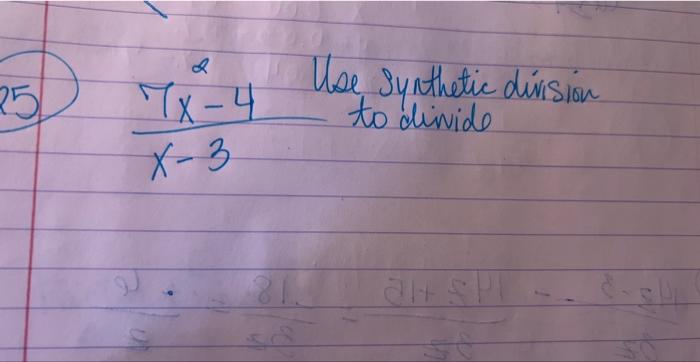 25
7x² - 4 Use Synthetic division
x - 3 to divide